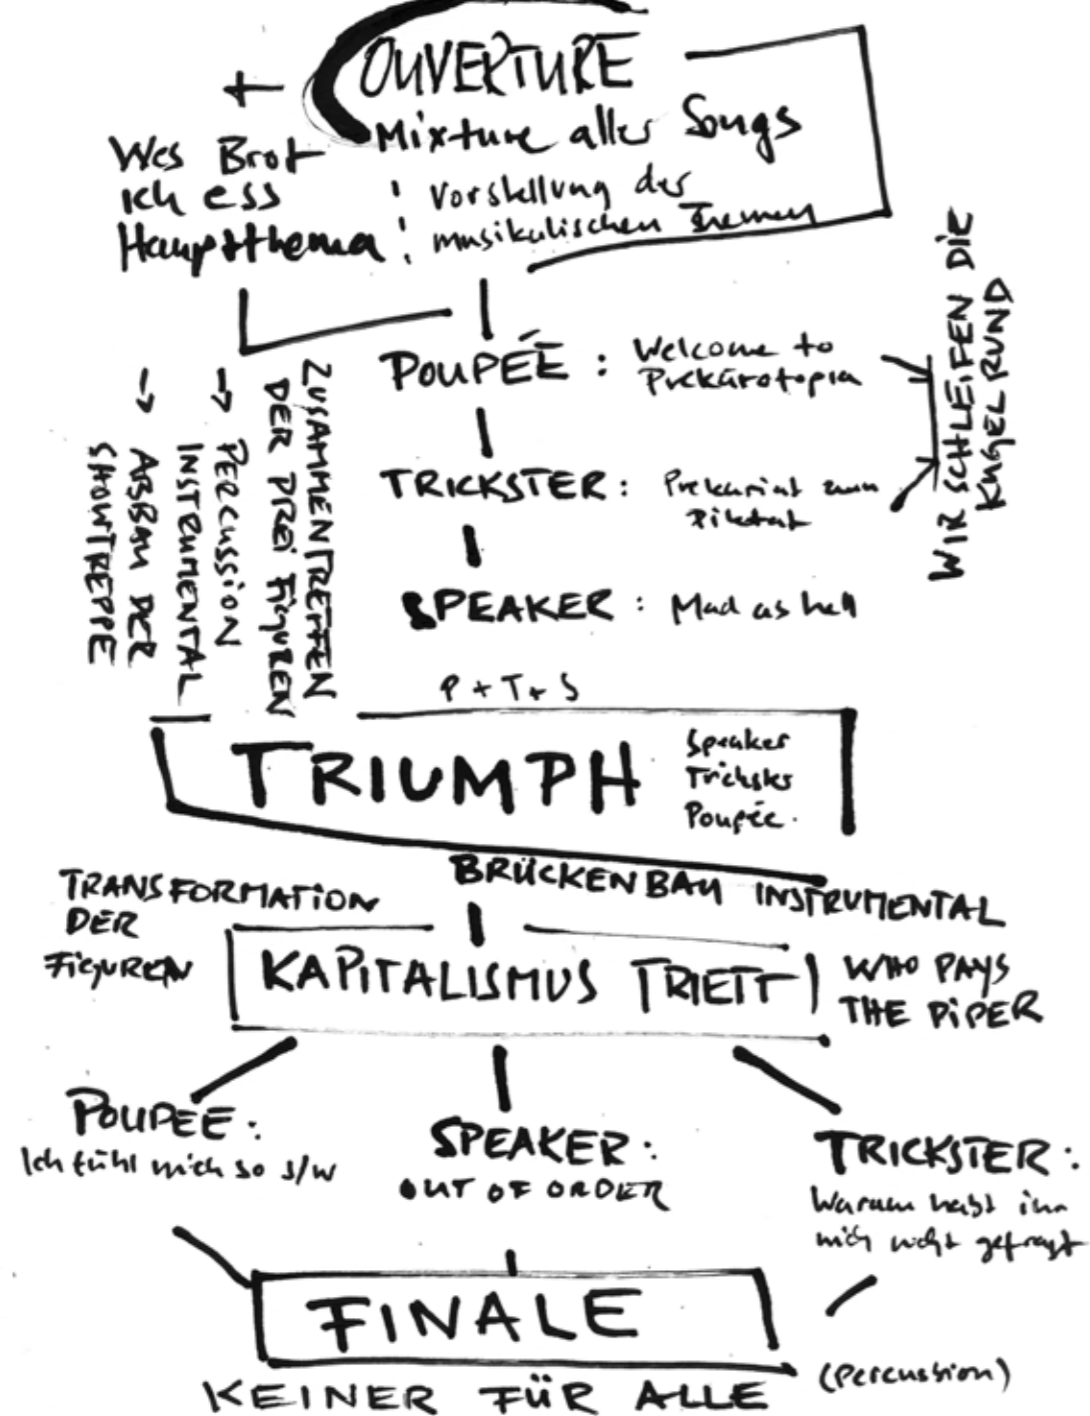 OUVERTURE
+
Mixture aller Songs
Wes Brot
ich ess
Hauptthema
: Vorstellung der
musikalischen Themen
WIR SCHLEIFEN DIE
KUGEL RUND
POUPÉE : Welcome to
Prekärotopia
TRICKSTER : Prekariat zum
SPEAKER : Mad as hell
ZUSAMMENTREFFEN
DER DREI FIGUREN
→ PERCUSSION
INSTRUMENTAL
→ ABBAU DER
SHOWTREPPE
P + T + S
TRIUMPH
Speaker
Trickster
Poupée.
BRÜCKENBAU INSTRUMENTAL
TRANSFORMATION
DER
FiGUREN
KAPITALISMUS TRIETT
WHO PAYS
THE PiPER
POUPEE :
Ich fühl mich so s/w
SPEAKER :
OUT OF ORDER
TRICKSTER :
Warum habt ihr
mich nicht gefragt
FINALE
(Percussion)
KEINER FÜR ALLE